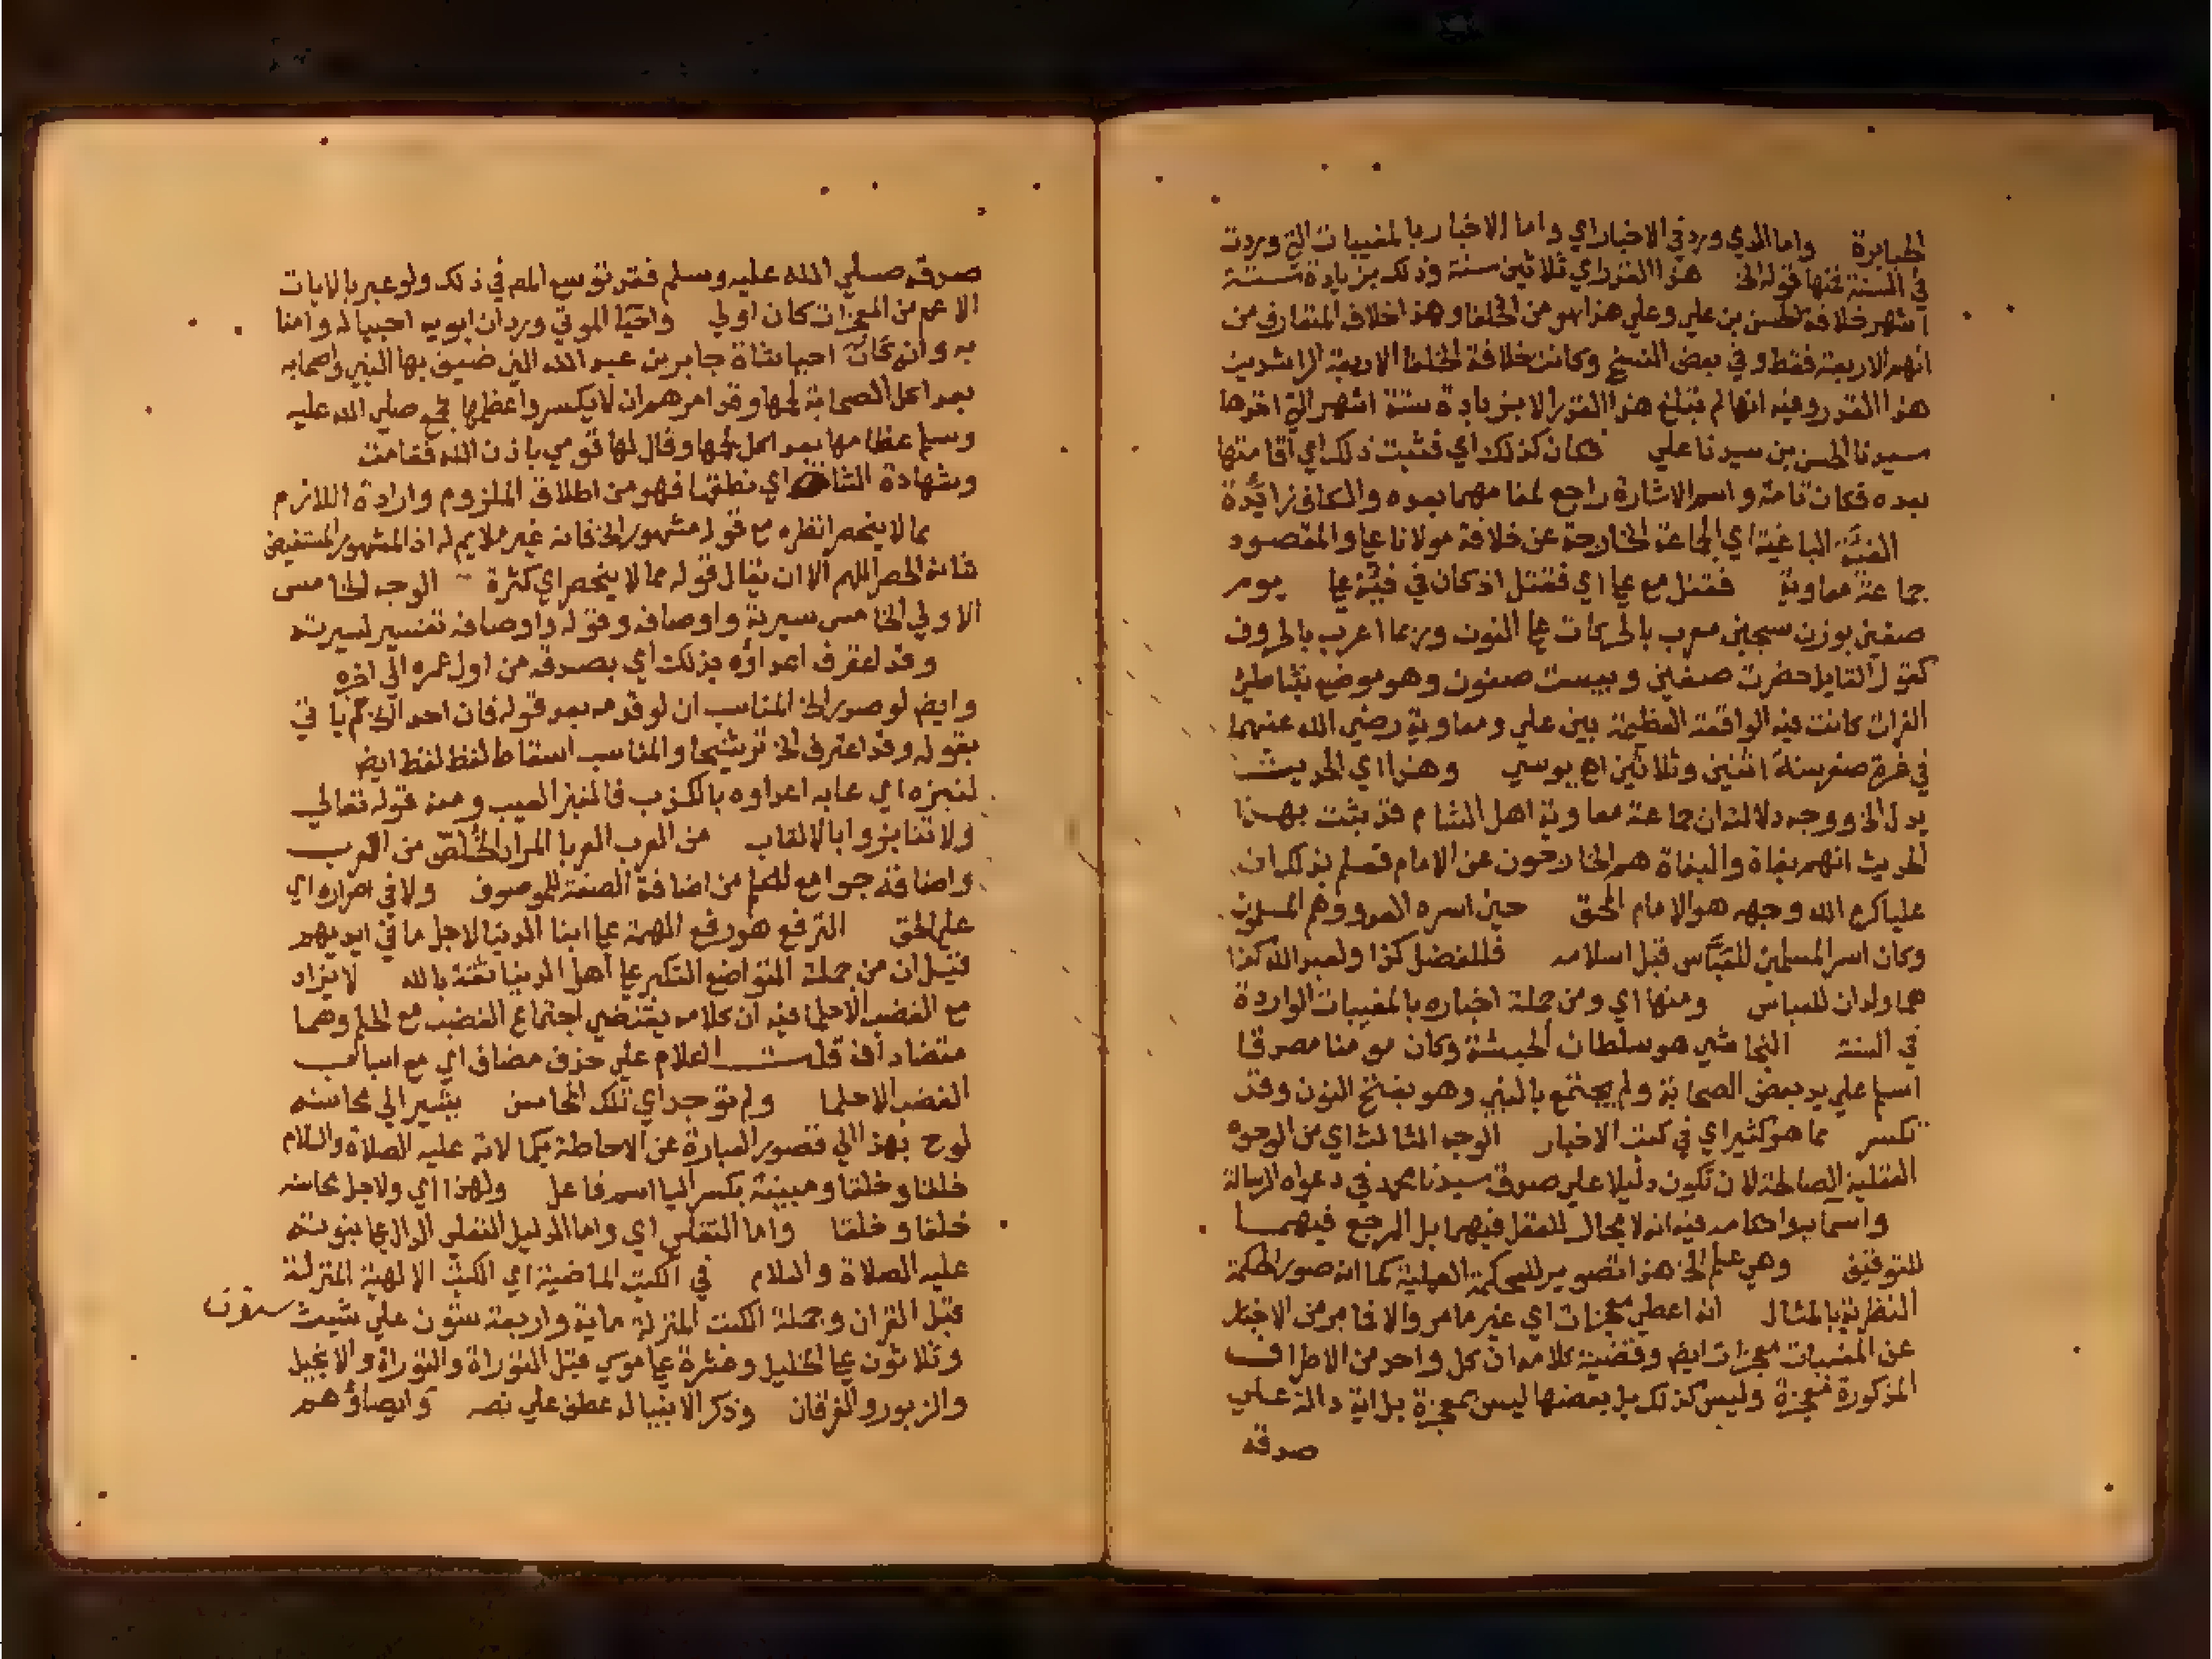 الجبابرة واما الذي ورد في الاخبار اي واما الاخبار بالمغيبات التي وردت
في السنة فمنها قوله الخ هذا القدر اي ثلاثين سنة وذلك بزيادة ستة
اشهر خلافة الحسن بن علي وعلي هذا هو من الخلفا وهذا خلاف المتعارف من
انهم الاربعة فقط وفي بعض النسخ وكانت خلافة الخلفا الاربعة الراشدين
هذا القدر وفيه انها لم تبلغ هذا القدر الا بزيادة ستة اشهر التي اخذها
سيدنا الحسن بن سيدنا علي فكان كذلك اي فثبت ذلك اي اقامتها
بعده فكان تامة واسم الاشارة راجع لمفا مهما بعده والكاف زايدة
الفئة الباغية اي الجماعة الخارجة عن خلافة مولانا علي والمقصود
جماعة معاوية فقتل مع علي اي فقتل اذ كان في فئة علي يوم
صفين بوزن سجين معرب بالحركات علي النون وربما اعرب بالحروف
كقول القايل حضرت صفين وبيست صفون وهو موضع بشاطئ
الفرات كانت فيه الواقعة العظيمة بين علي ومعاوية رضي الله عنهما
في غرة صفر سنة اثنين وثلاثين اه يوسي وهذا اي الحديث
يدل الخ ووجه دلالته ان جماعة معاوية اهل الشام قد ثبت بهذا
الحديث انهم بغاة والبغاة هم الخارجون عن الامام فعلم بذلك ان
عليا كرم الله وجهه هو الامام الحق حين اسره العدو وهم المسلمون
وكان اسر المسلمين للعباس قبل اسلامه فللفضل كذا ولعبد الله كذا
هما ولدان للعباس ومنها اي ومن جملة اخباره بالمغيبات الواردة
في السنة النجاشي هو سلطان الحبشة وكان مومنا مصدقا
اسلم علي يد بعض الصحابة ولم يجتمع بالنبي وهو بفتح النون وقد
تكسر مما هو كثير اي في كتب الاخبار الوجه الثالث اي من الوجوه
العقلية الصالحة لان تكون دليلا علي صدق سيدنا محمد في دعواه الرسالة
واسباب واحكامه فيه انه لا مجال للعقل فيهما بل المرجع فيهما
للتوقيف وهي علم الخ هذا تصوير للحكمة العملية كما انه صور الحكمة
النظرية بالمثال انه اعطي معجزات اي غير ما مر والا فما مر من الاخبار
عن المغيبات معجزات ايض وقضية كلامه ان كل واحد من الاطراف
المذكورة معجزة وليس كذلك بل بعضها ليس بمعجزة بل اية دالة علي
صدقه
صدقه صلي الله عليه وسلم فقد توسع المص في ذلك ولو عبر بالايات
الاعم من المعجزات كان اولي واحيا الموتي ورد ان ابويه احييا له وامنا
به وانه كان احيا شاة جابر بن عبد الله التي ضيف بها النبي واصحابه
بعد اكل الصحابة لحمها وقد امرهم ان لا يكسروا عظمها فجمع صلي الله عليه
وسلم عظامها بعد اكل لحمها وقال لها قومي باذن الله فقامت
وشهادة الشاة اي نطقها فهو من اطلاق الملزوم وارادة اللازم
مما لا ينحصر انظره مع قوله مشهور الخ فانه غير ملايم له اذ المشهور المستفيض
شانه الحصر اللهم الا ان يقال قوله مما لا ينحصر اي كثرة الوجه الخامس
الاولي الخامس سيرته واوصافه وقوله واوصافه تفسير لسيرته
وقد اعترف اعداؤه بذلك اي بصدقه من اول عمره الي اخره
وايض لو صور الخ المناسب ان لو قدمه بعد قوله فان احدا الخ ثم ياتي
بقوله وقد اعترف الخ ترشيحا والمناسب اسقاط لفظ لفظ ايض
لنبزه اي عابه اعداوه بالكذب فالنبز العيب ومنه قوله تعالي
ولا تنابزوا بالالقاب من العرب العربا المراد الخلص من العرب
واضافة جوامع للكلم من اضافة الصفة للموصوف ولا في اصراره اي
علي الحق الترفع هو رفع الهمة علي ابنا الدنيا لاجل ما في ايديهم
فقيل ان من جملة التواضع التكبر علي اهل الدنيا ثقة بالله لا يزداد
مع الغضب الا حلما فيه ان كلامه يقتضي اجتماع الغضب مع الحلم وهما
متضادان قلت الكلام علي حذف مضاف اي مع اسباب
الغضب الا حلما ولم توجد اي تلك المحاسن يشير الي محاسنه
لوح بهذا الي قصور العبارة عن الاحاطة بكمالاته عليه الصلاة والسلام
خلقا وخلقا ومبينة بكسر اليا اسم فاعل ولهذا اي ولاجل محاسنه
خلقا وخلقا واما النقلي اي واما الدليل النقلي الدال علي نبوته
عليه الصلاة والسلام في الكتب الماضية اي الكتب الالهية المنزلة
قبل القران وجملة الكتب المنزلة ماية واربعة ستون علي شيث
وثلاثون علي الخليل وعشرة علي موسي قبل التوراة والتوراة والانجيل
والزبور والفرقان وذكر الانبيا له عطف علي نصه وايصاؤهم